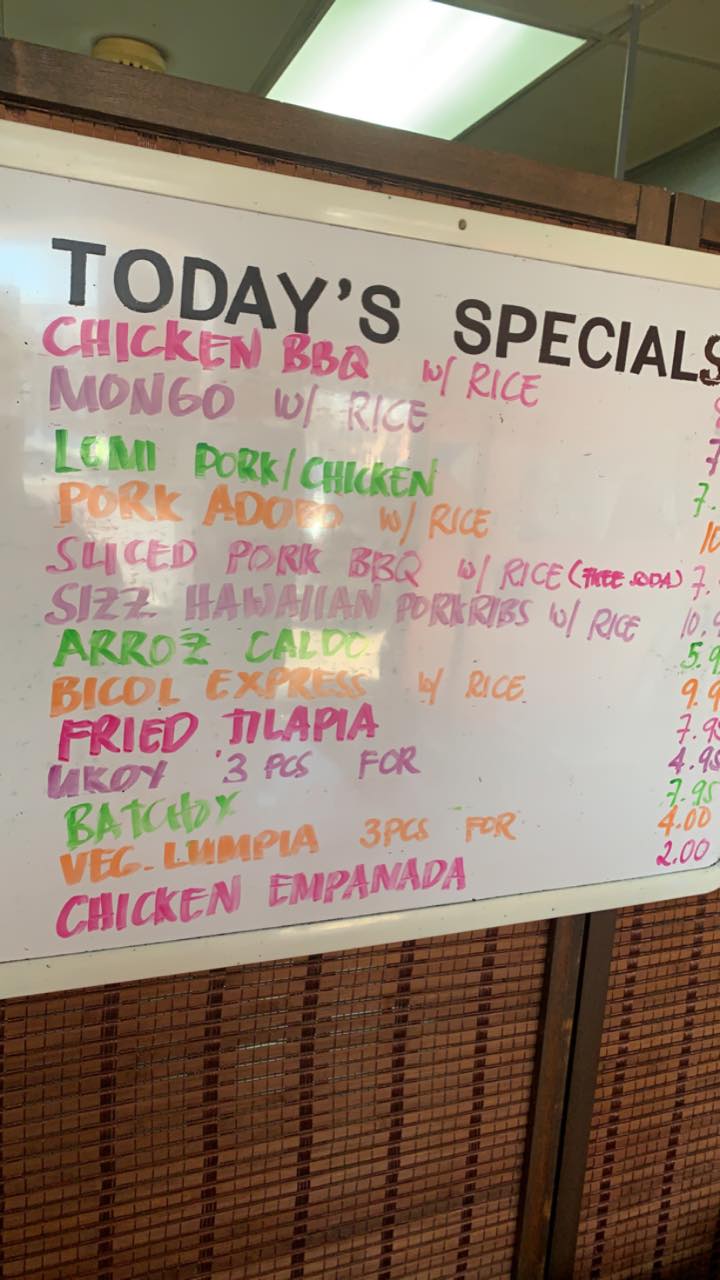 TODAY'S SPECIALS
CHICKEN BBQ w/ RICE
MONGO w/ RICE 7
LOMI PORK/CHICKEN 7.
PORK ADOBO w/ RICE 10
SLICED PORK BBQ w/ RICE (FREE SODA) 7.
SIZZ HAWAIIAN PORKRIBS w/ RICE 10.9
ARROZ CALDO 5.9
BICOL EXPRESS w/ RICE 9.9
FRIED TILAPIA 7.95
UKOY 3 PCS FOR 4.95
BATCHOY 7.95
VEG. LUMPIA 3PCS FOR 4.00
CHICKEN EMPANADA 2.00